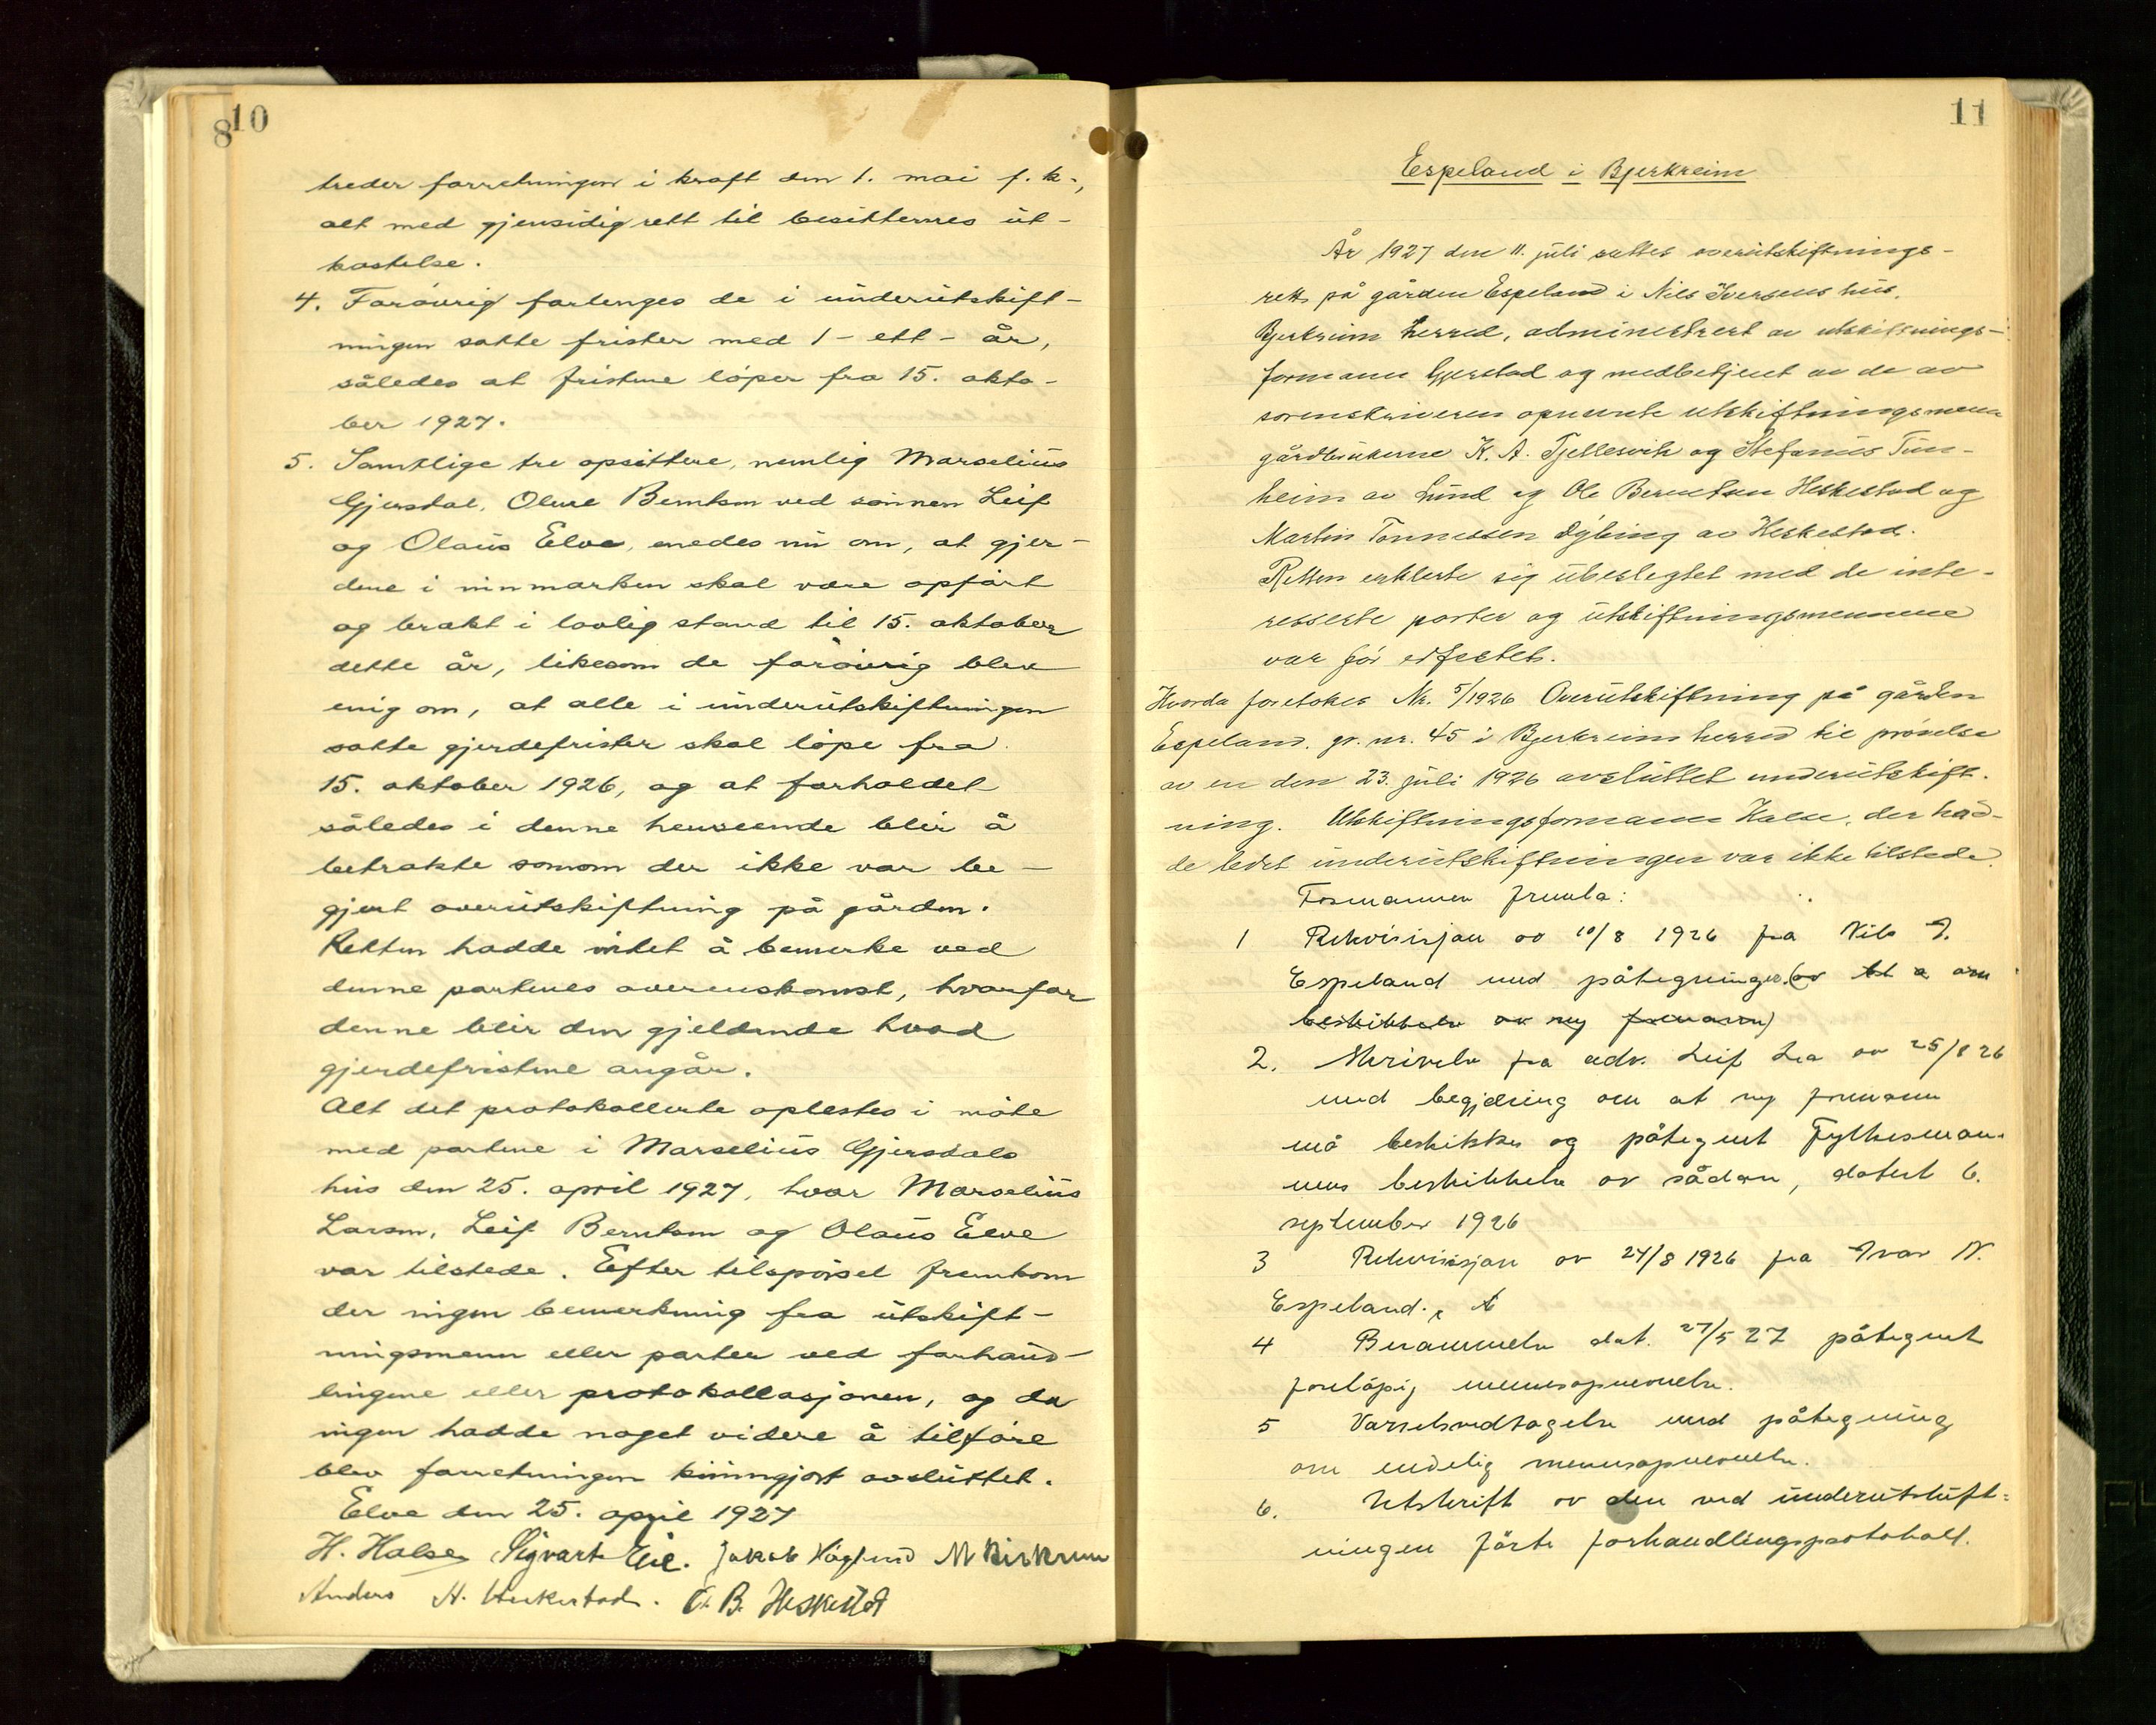 10
8
treder forretningen i kraft den 1. mai f. k.,
alt med gjensidig rett til besitternes ut-
kastelse.
4. Forøvrig forlenges de i underutskift-
ningen satte frister med 1 - ett - år,
således at fristene løper fra 15. okto-
ber 1927.
5. Samtlige tre opsittere, nemlig Marselius
Gjersdal, Oline Berntsen ved sønnen Leif
og Olaus Elve, enedes nu om, at gjer-
dene i innmarken skal være opført
og brakt i lovlig stand til 15. oktober
dette år, likesom de forøvrig blev
enig om, at alle i underutskiftningen
satte gjerdefrister skal løpe fra
15. oktober 1926, og at forholdet
således i denne henseende blir å
betrakte somom der ikke var be-
gjert overutskiftning på gården.
Retten hadde intet å bemerke ved
denne partenes overenskomst, hvorfor
denne blir den gjeldende hvad
gjerdefristene angår.
Alt det protokollerte oplestes i møte
med partene i Marselius Gjersdals
hus den 25. april 1927, hvor Marselius
Larsen, Leif Berntsen og Olaus Elve
var tilstede. Efter tilspørsel fremkom
der ingen bemerkning fra utskift-
ningsmenn eller parter ved forhand-
lingene eller protokollasjonen, og da
ingen hadde noget videre å tilføre
blev forretningen kunngjort avsluttet.
Elve den 25. april 1927
H. Halse Sigvart Eie. Jakob Høglund M Birkrem
Anders H. Heskestad. O. B. Heskestad
11
Espeland i Bjerkreim
År 1927 den 11. juli sattes overutskiftnings-
rett på gården Espeland i Nils Iversens hus,
Bjerkreim herred, administrert av utskiftnings-
formann Gjerstad og medbetjent av de av
sorenskriveren opnevnte utskiftningsmenn
gårdbrukerne K. A. Tjellesvik og Stefanus Tun-
heim av Lund og Ole Berntsen Heskestad og
Martin Tønnessen Dybing av Heskestad.
Retten erklerte sig ubeslegtet med de inte-
resserte parter og utskiftningsmennene
var før edfestet.
Hvorda foretokes Nr. 5/1926 Overutskiftning på gården
Espeland, gr. nr. 45 i Bjerkreim herred til prøvelse
av en den 23. juli 1926 avsluttet underutskift-
ning. Utskiftningsformann Halse, der had-
de ledet underutskiftningen var ikke tilstede.
Formannen fremla:
1 Rekvisisjon av 10/8 1926 fra Nils I.
Espeland med påtegninger (av om
beskikkelse av ny formann)
2. Skrivelse fra adv. Leif Lea av 25/8 26
med begjæring om at ny formann
må beskikkes og påtegnet Fylkesman-
nens beskikkelse av sådan, datert 6.
september 1926
3 Rekvisisjon av 24/8 1926 fra Ivar N.
Espeland.
4 Berammelse dat. 27/5 27 påtegnet
foreløpig mennsopnevnelse.
5 Varselsvedtagelse med påtegning
om endelig mennsopnevnelse.
6. Utskrift av den ved underutskift=
ningen førte forhandlingsprotokoll.